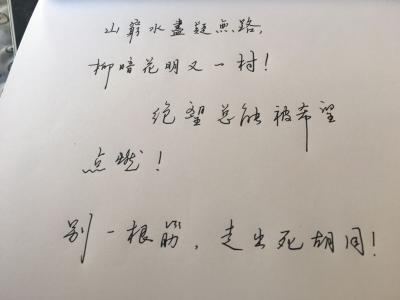 山窮水盡疑無路，
柳暗花明又一村！
绝望总能被希望
点燃！
别一根筋，走出死胡同！